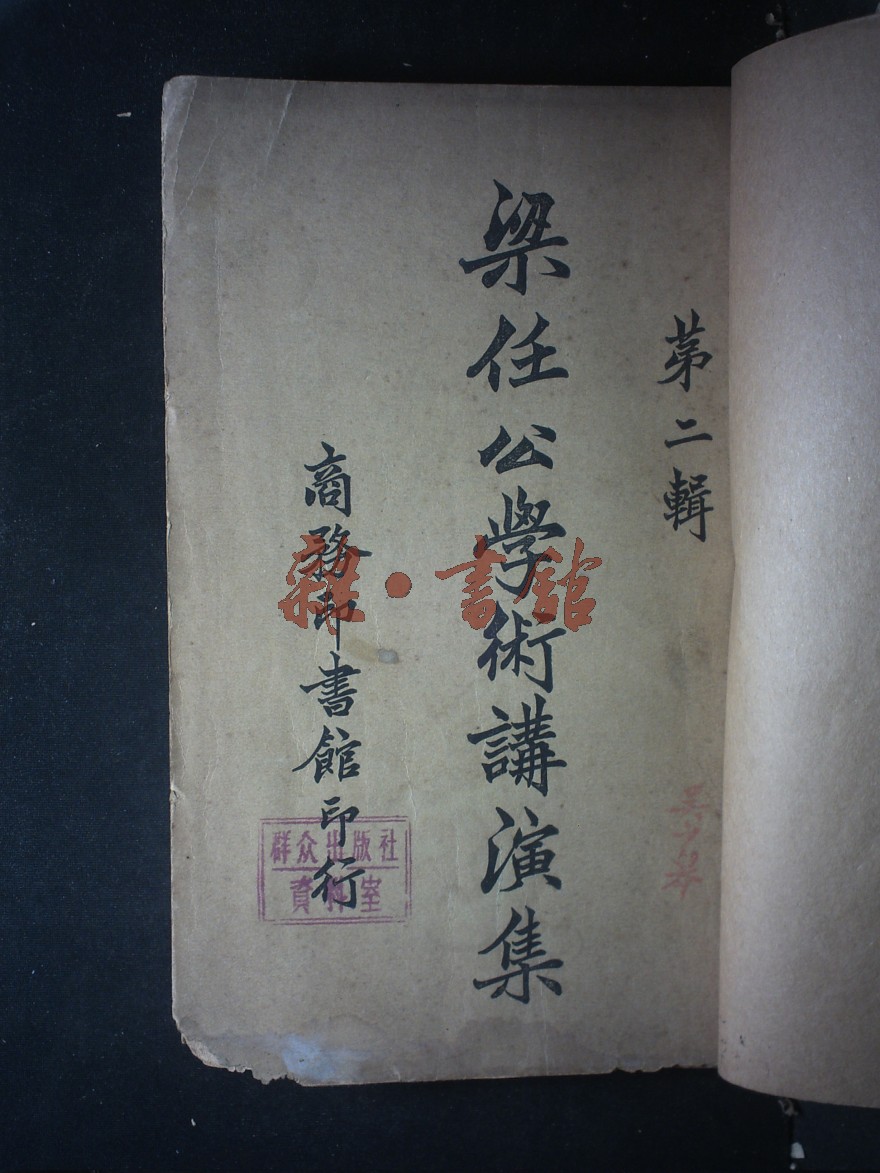 第二輯
梁任公學術講演集
商務印書館印行
群众出版社
資料室
雜·書館